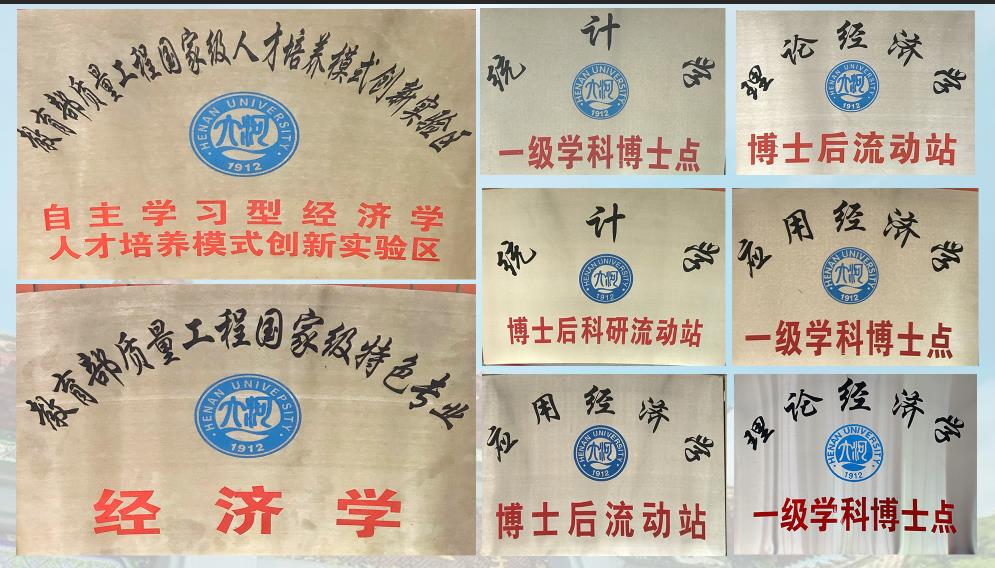 教育部质量工程国家级人才培养模式创新实验区
HENAN UNIVERSITY
1912
自主学习型经济学
人才培养模式创新实验区
教育部质量工程国家级特色专业
HENAN UNIVERSITY
1912
经济学
统计学
HENAN UNIVERSITY
1912
一级学科博士点
理论经济学
HENAN UNIVERSITY
1912
博士后流动站
统计学
HENAN UNIVERSITY
1912
博士后科研流动站
应用经济学
HENAN UNIVERSITY
1912
一级学科博士点
应用经济学
HENAN UNIVERSITY
1912
博士后流动站
理论经济学
HENAN UNIVERSITY
1912
一级学科博士点